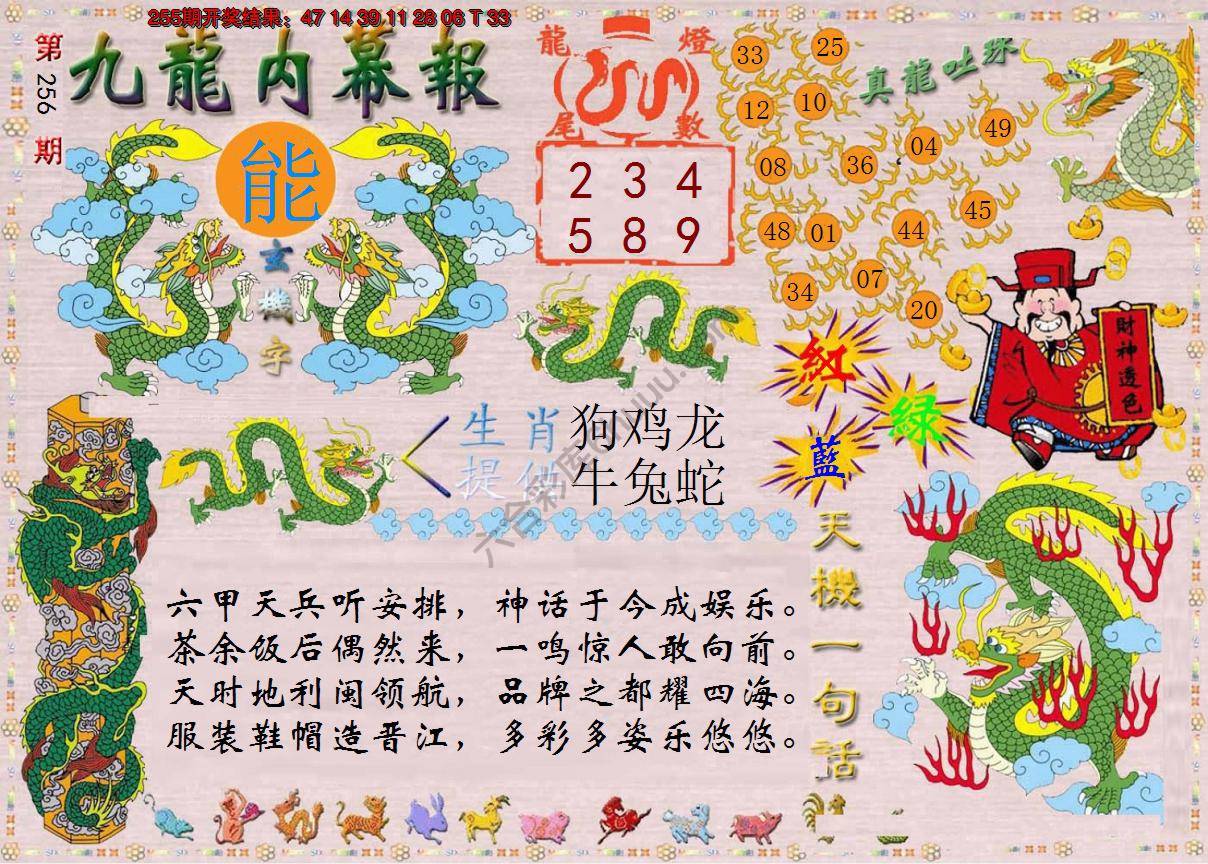 255期开奖结果：47 14 39 11 28 06 T 33
第256期
九龍内幕報
能
玄機字
龍燈尾數
2 3 4
5 8 9
真龍吐珠
33
25
12
10
49
04
08
36
45
48
01
44
07
34
20
財神透色
紅
綠
藍
生肖 狗鸡龙
提供 牛兔蛇
天機一句話
六甲天兵听安排，神话于今成娱乐。
茶余饭后偶然来，一鸣惊人敢向前。
天时地利闽领航，品牌之都耀四海。
服装鞋帽造晋江，多彩多姿乐悠悠。